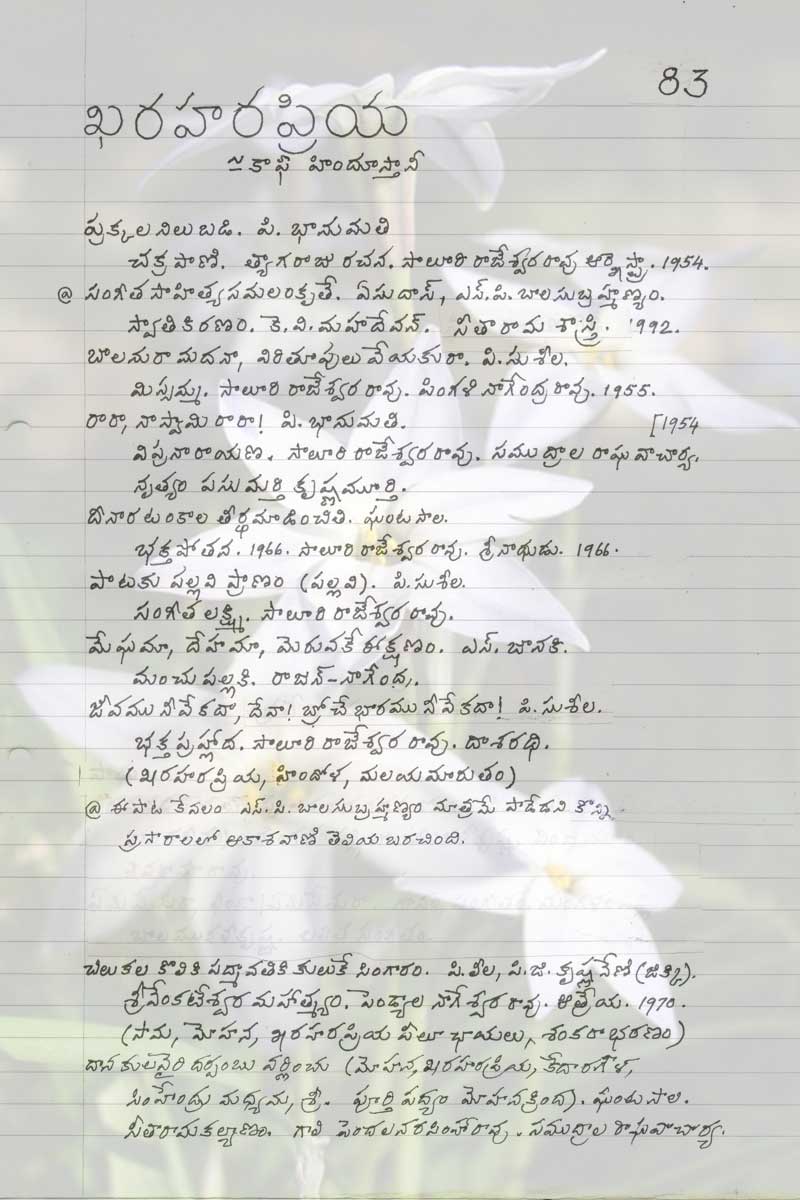 83
ఖరహరప్రియ
~ కాఫీ హిందూస్తానీ
ప్రక్కల నిలుబడి. పి. భానుమతి
చక్రపాణి. త్యాగరాజు రచన. సాలూరి రాజేశ్వర రావు ఆర్కెస్ట్రా. 1954.
@ సంగీత సాహిత్య సమలంకృతే. ఏసుదాస్, ఎస్.పి.బాలసుబ్రహ్మణ్యం.
స్వాతికిరణం. కె.వి.మహాదేవన్. సీతారామ శాస్త్రి. 1992.
బాలనురా మదనా, విరితూపులు వేయకురా. పి.సుశీల.
మిస్సమ్మ. సాలూరి రాజేశ్వర రావు. పింగళి నాగేంద్ర రావు. 1955.
రారా, నాస్వామి రారా! పి. భానుమతి. [1954
విప్రనారాయణ. సాలూరి రాజేశ్వరరావు. సముద్రాల రాఘవాచార్య.
నృత్యం పసుమర్తి కృష్ణమూర్తి.
దీనార టంకాల తీర్థమాడించితి. ఘంటసాల.
భక్తపోతన. 1966. సాలూరి రాజేశ్వర రావు. శ్రీనాథుడు. 1966.
పాటకు పల్లవి ప్రాణం (పల్లవి). పి.సుశీల.
సంగీత లక్ష్మి. సాలూరి రాజేశ్వర రావు.
మేఘమా, దేహమా, మెరువకే ఈక్షణం. ఎస్. జానకి.
మంచుపల్లకి. రాజన్-నాగేంద్ర.
జీవము నీవేకదా, దేవా! బ్రోచే భారము నీవేకదా! పి.సుశీల.
భక్త ప్రహ్లాద. సాలూరి రాజేశ్వర రావు. దాశరథి.
(ఖరహరప్రియ, హిందోళ, మలయమారుతం)
@ ఈపాట కేవలం ఎస్.పి.బాలసుబ్రహ్మణ్యం మాత్రమే పాడేడని కొన్ని
ప్రసారాలలో ఆకాశవాణి తెలియబరచింది.
చిలుకల కొలికి పద్మావతికి కులుకే సింగారం. పి.లీల, పి.జి.కృష్ణవేణి (జిక్కి).
శ్రీవేంకటేశ్వర మహాత్మ్యం. పెండ్యాల నాగేశ్వర రావు. ఆత్రేయ. 1970.
(సామ, మోహన, ఖరహరప్రియ పీలూ ఛాయలు, శంకరాభరణం)
దానకులవైరి దర్పంబు వర్ణించు (మోహన, ఖరహరప్రియ, కేదారగౌళ,
సింహేంద్ర మధ్యమ, శ్రీ. పూర్తి పద్యం మోహనక్రింద). ఘంటసాల.
సీతారామకల్యాణం. గాలి పెంచలనరసింహారావు. సముద్రాల రాఘవాచార్య.